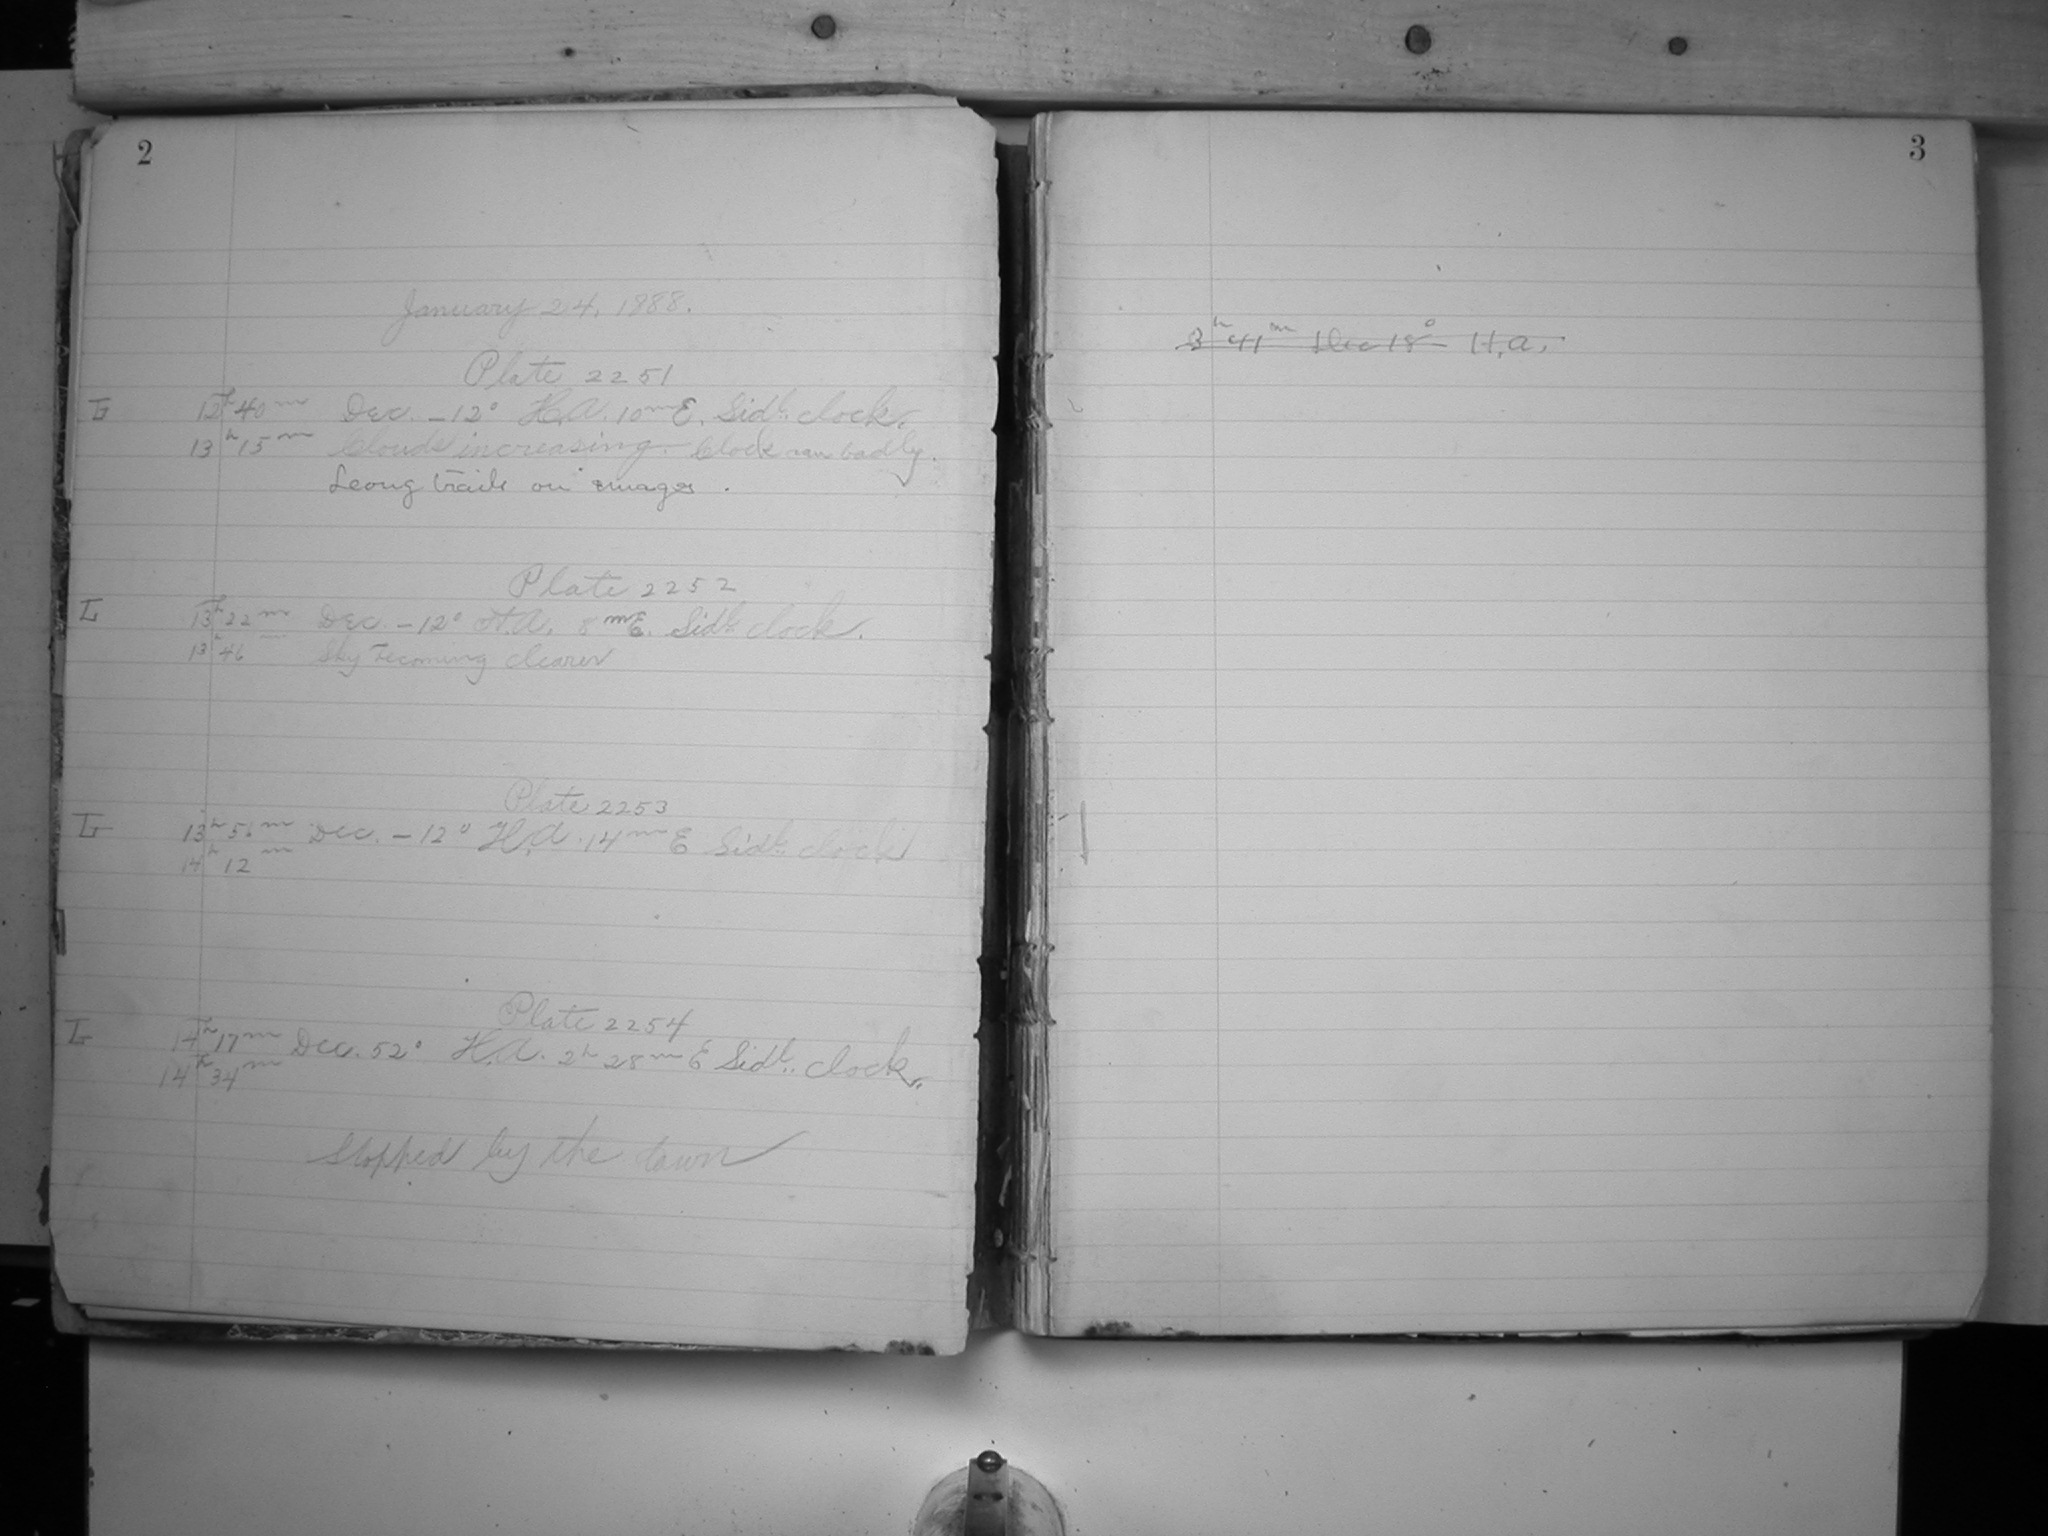 2
January 24, 1888.
Plate 2251
L 12h 40m Dec. -12° H.A. 10m E. Sidl. clock.
13h 15m Clouds increasing. Clock ran badly.
Long trails on images.
Plate 2252
L 13h 22m Dec. -12° H.A. 8m E. Sidl. clock.
13h 46m Sky becoming clearer
Plate 2253
L 13h 51m Dec. -12° H.A. 14m E Sidl. clock
14h 12m
Plate 2254
L 14h 17m Dec. 52° H.A. 2h 28m E Sidl. clock.
14h 34m
Stopped by the dawn
3
3h 41m Dec 18° H.A.